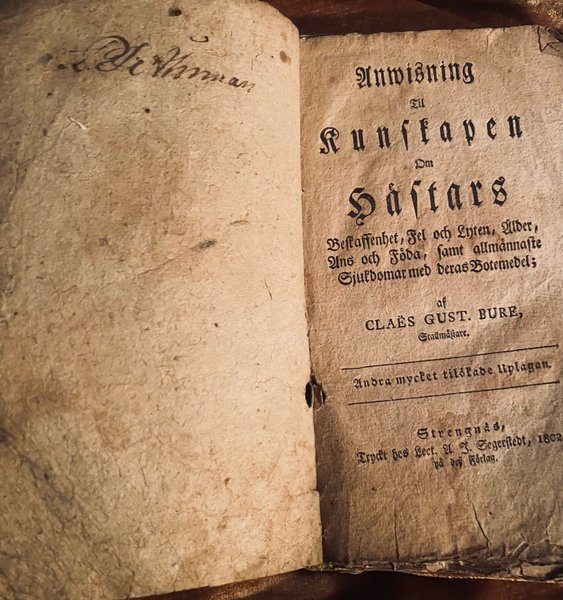 Anwisning
Til
Kunskapen
Om
Hästars
Beskaffenhet, Fel och Lyten, Ålder,
Ans och Föda, samt allmännaste
Sjukdomar med deras Botemedel;
af
CLAËS GUST. BURE,
Stallmästare.
Andra mycket tilökade Uplagan.
Strengnäs,
Tryckt hos Lect. A. J. Segerstedt, 1802
på deß Förlag.